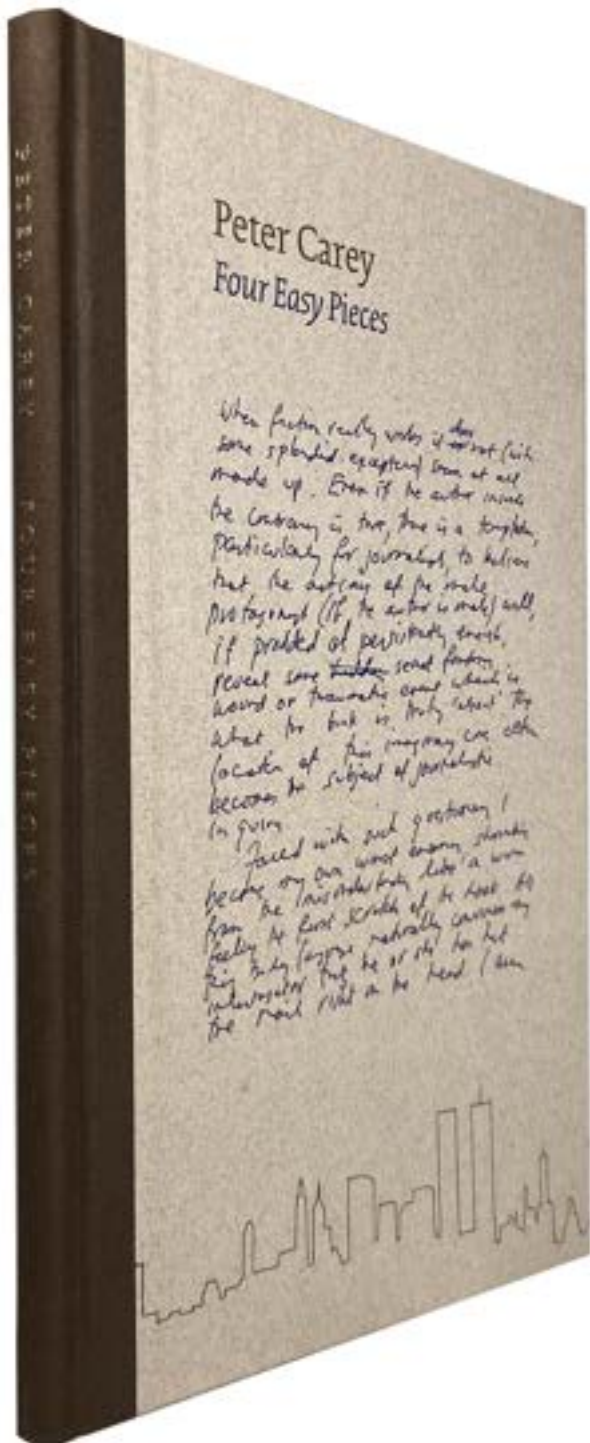 PETER CAREY FOUR EASY PIECES
Peter Carey
Four Easy Pieces
When fiction really works it does not (with
some splendid exceptions) seem at all
made up. Even if the author
the contrary is true, there is a temptation,
particularly for journalists, to believe
that the of the male
protagonist (if the author is male) will,
if prodded at persistently enough,
reveal some hidden secret
wound or traumatic event which is
what the book is truly 'about' The
location of this imaginary core often
becomes the subject of journalistic
inquiry
Faced with such questioning I
become my own worst enemy
from the like a worm
feeling the first scratch of the hook
interrogator that he or she has hit
the nail right on the head I am